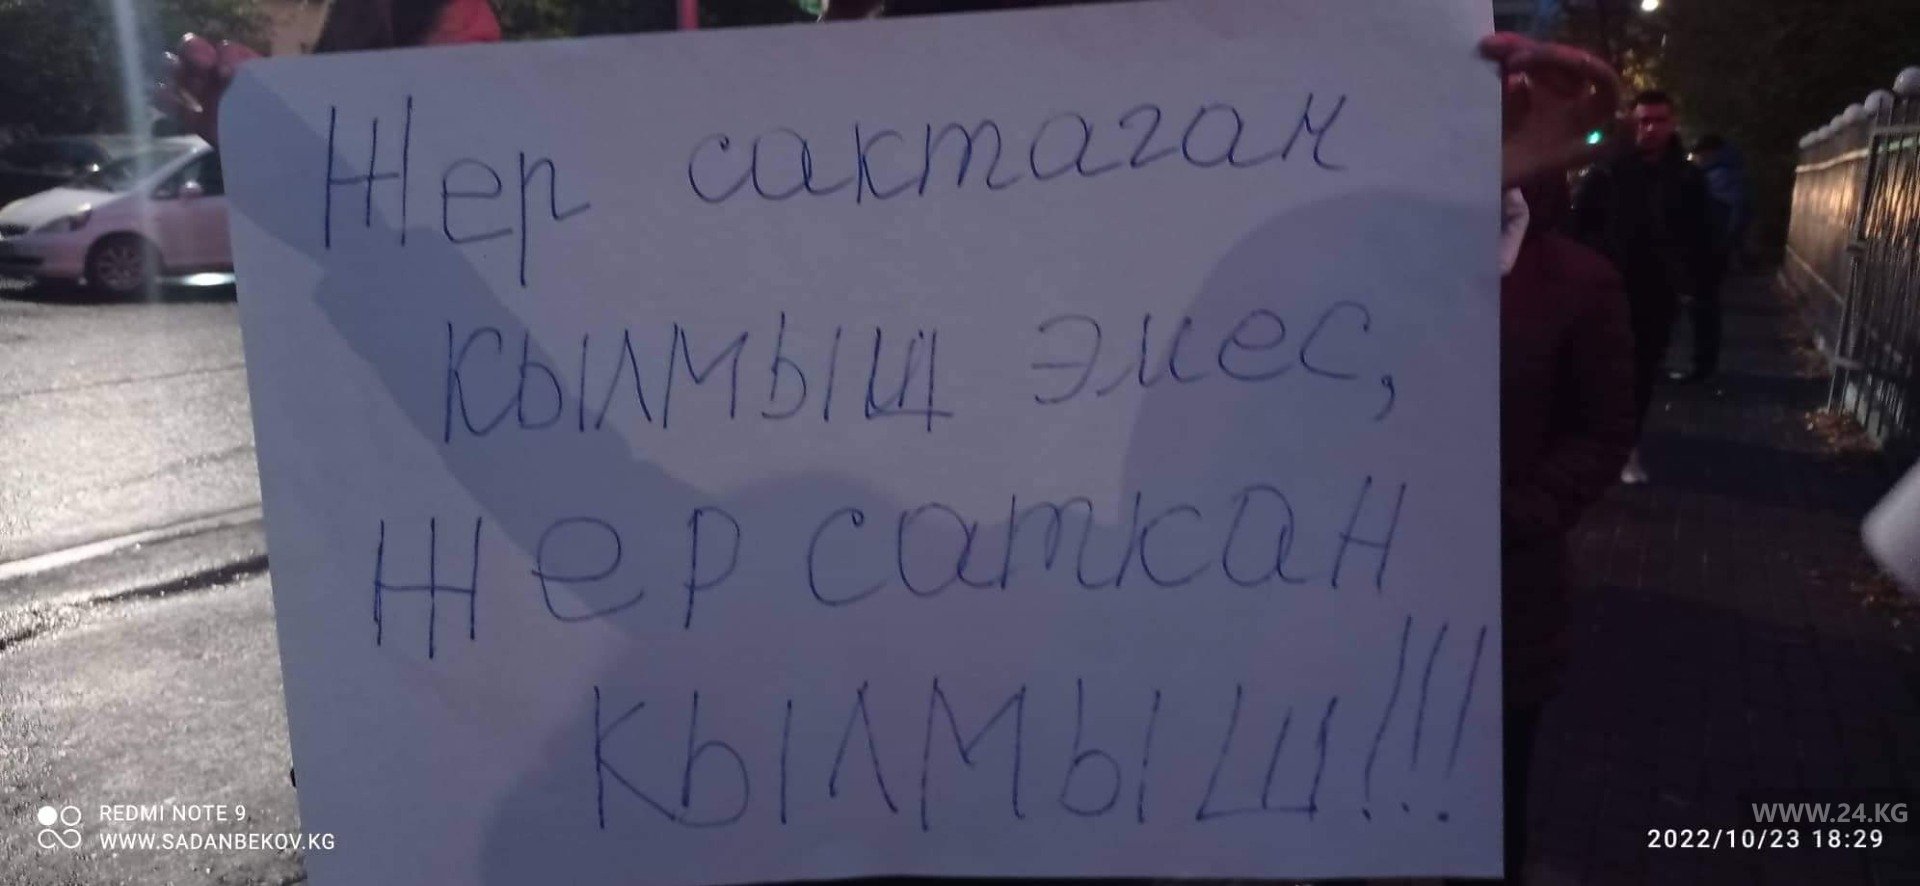 Жер сактаган
кылмыш эмес,
Жер саткан
кылмыш!!!
REDMI NOTE 9
WWW.SADANBEKOV.KG
WWW.24.KG
2022/10/23 18:29